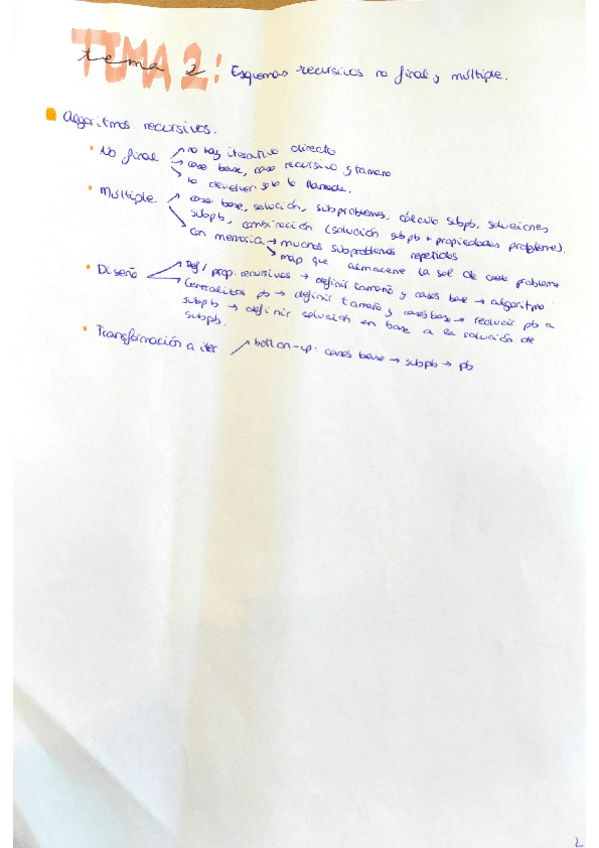 TEMA 2:
tema 2
Esquemas recursivos no final y múltiple.
Algoritmos recursivos.
No final → no hay iterativo directo
→ caso base, caso recursivo y tamaño
→ ha devolver solo la llamada.
Múltiple → caso base, solución, subproblemas, cálculo subpb, soluciones
subpb, combinación (solución subpb + propiedades problema).
con memoria → muchos subproblemas repetidos
→ map que almacene la sol de cada problema
Diseño → Def / prop. recursivos → definir tamaño y casos base → algoritmo
Generalizar pb → definir tamaño y casos base → reducir pb a
subpb → definir solución en base a la solución de
subpb.
Transformación a iter → bottom-up: casos base → subpb → pb
2